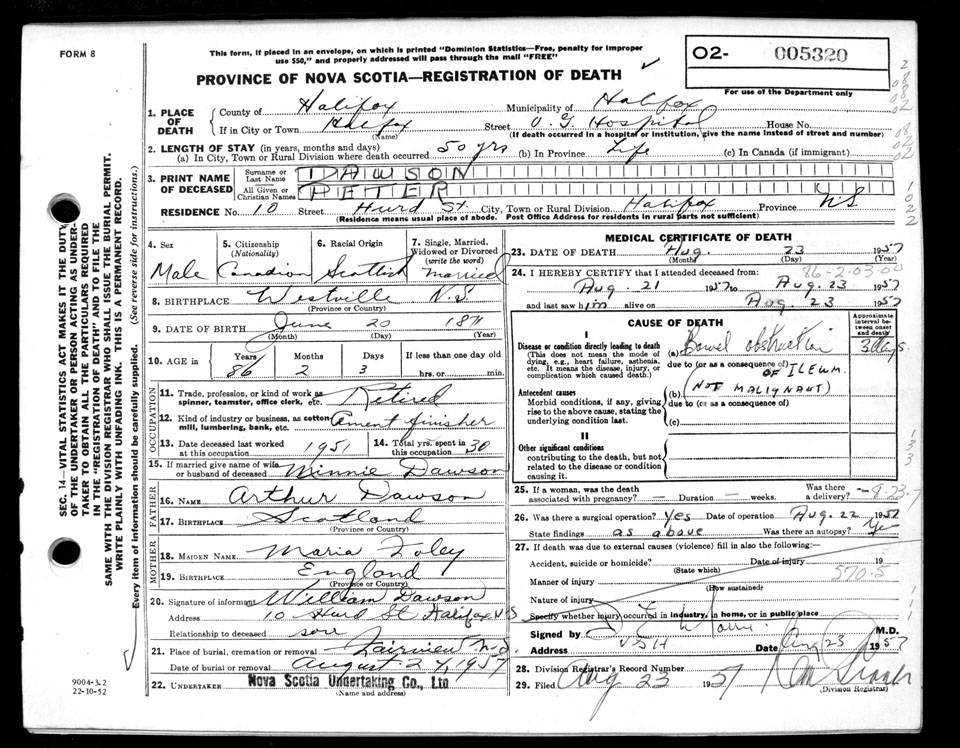 FORM 8
This form, if placed in an envelope, on which is printed "Dominion Statistics—Free, penalty for improper
use $50," and properly addressed will pass through the mail "FREE"
PROVINCE OF NOVA SCOTIA—REGISTRATION OF DEATH
02- 005320
For use of the Department only
1. PLACE OF DEATH County of Halifax Municipality of Halifax
If in City or Town Halifax (Name) Street V.G. Hospital House No.
(If death occurred in a hospital or institution, give the name instead of street and number)
2. LENGTH OF STAY (in years, months and days)
(a) In City, Town or Rural Division where death occurred 50 yrs (b) In Province Life (c) In Canada (if immigrant)
3. PRINT NAME OF DECEASED Surname or Last Name DAWSON
All Given or Christian Names PETER
RESIDENCE No. 10 Street Hurd St. City, Town or Rural Division Halifax Province N.S.
(Residence means usual place of abode. Post Office Address for residents in rural parts not sufficient)
4. Sex Male
5. Citizenship (Nationality) Canadian
6. Racial Origin Scottish
7. Single, Married, Widowed or Divorced (write the word) married
8. BIRTHPLACE Westville N.S.
(Province or Country)
9. DATE OF BIRTH June 20 1871
(Month) (Day) (Year)
10. AGE in Years 86 Months 2 Days 3 If less than one day old
hrs. or min.
OCCUPATION
11. Trade, profession or kind of work as spinner, teamster, office clerk, etc. Retired
12. Kind of industry or business, as cotton mill, lumbering, bank, etc. Cement finisher
13. Date deceased last worked at this occupation 1951
14. Total yrs. spent in this occupation 30
15. If married give name of wife or husband of deceased Minnie Dawson
FATHER
16. NAME Arthur Dawson
17. BIRTHPLACE Scotland
(Province or Country)
MOTHER
18. MAIDEN NAME Maria Foley
19. BIRTHPLACE England
(Province or Country)
20. Signature of informant William Dawson
Address 10 Hurd St Halifax N.S
Relationship to deceased son
21. Place of burial, cremation or removal Fairview N.S.
Date of burial or removal August 24, 1957
22. UNDERTAKER Nova Scotia Undertaking Co., Ltd
(Name and address)
MEDICAL CERTIFICATE OF DEATH
23. DATE OF DEATH Aug. 23 1957
(Month) (Day) (Year)
86-2-03-00
24. I HEREBY CERTIFY that I attended deceased from:
Aug. 21 1957 to Aug. 23 1957
and last saw him alive on Aug. 23 1957
CAUSE OF DEATH
Approximate interval between onset and death
I
Disease or condition directly leading to death
(This does not mean the mode of dying, e.g., heart failure, asthenia, etc. It means the disease, injury, or complication which caused death.)
(a) Bowel obstruction 3 days.
due to (or as a consequence of) OF ILEUM.
Antecedent causes
Morbid conditions, if any, giving rise to the above cause, stating the underlying condition last.
(b) (NOT MALIGNANT)
due to (or as a consequence of)
(c)
II
Other significant conditions
contributing to the death, but not related to the disease or condition causing it.
25. If a woman, was the death associated with pregnancy? — Duration — weeks. Was there a delivery? —
26. Was there a surgical operation? Yes Date of operation Aug. 22 1957
State findings as above Was there an autopsy? Yes
27. If death was due to external causes (violence) fill in also the following:—
Accident, suicide or homicide? Date of injury 19
(State which)
570.5
Manner of injury
(How sustained)
Nature of injury
Specify whether injury occurred in industry, in home, or in public place
Signed by M.D.
Address VGH Date Aug 23 1957
28. Division Registrar's Record Number
29. Filed Aug 23 1957
(Division Registrar)
SEC. 14—VITAL STATISTICS ACT MAKES IT THE DUTY
OF THE UNDERTAKER OR PERSON ACTING AS UNDER-
TAKER TO OBTAIN ALL THE PARTICULARS REQUIRED
IN THE "REGISTRATION OF DEATH" AND TO FILE THE
SAME WITH THE DIVISION REGISTRAR WHO SHALL ISSUE THE BURIAL PERMIT.
WRITE PLAINLY WITH UNFADING INK. THIS IS A PERMANENT RECORD.
Every item of information should be carefully supplied. (See reverse side for instructions.)
9004-3.2
22-10-52